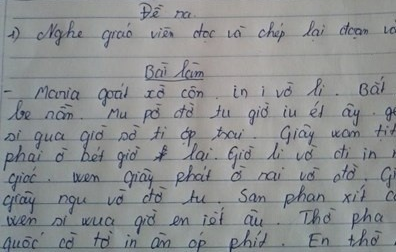 Đề ra.
1) Nghe giáo viên đọc và chép lại đoạn vă
Bài làm
- Mania goát xờ côn. in i vờ li. Bất
be nằn. Mu pờ đờ tu giờ iu ét ây. ge
si qua giờ sờ ti ớp trai. Giây wam tit
phai ờ bét giờ lai. Giờ li vờ đi in r
giớ. wen giây phát ờ nai vờ đờ. Gi
giây ngu vờ đờ tu. San phan xit c
wen si wua giờ en iét ây. Thờ pha
quốc cờ tờ in ăn óp phit. En thờ